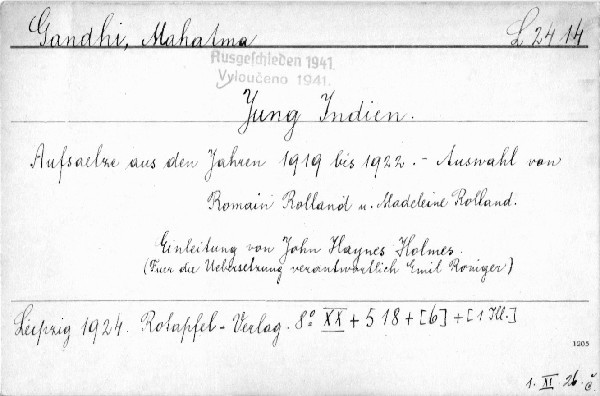 Gandhi, Mahatma L 24 14
Ausgeschieden 1941.
Vyloučeno 1941.
Jung Indien.
Aufsaetze aus den Jahren 1919 bis 1922. - Auswahl von
Romain Rolland u. Madeleine Rolland.
Einleitung von John Haynes Holmes.
(Fuer die Uebersetzung verantwortlich Emil Roniger)
Leipzig 1924. Rotapfel-Verlag. 8° XX + 518 + [6] + [1 Ill.]
1205
1. XI. 26. Č.